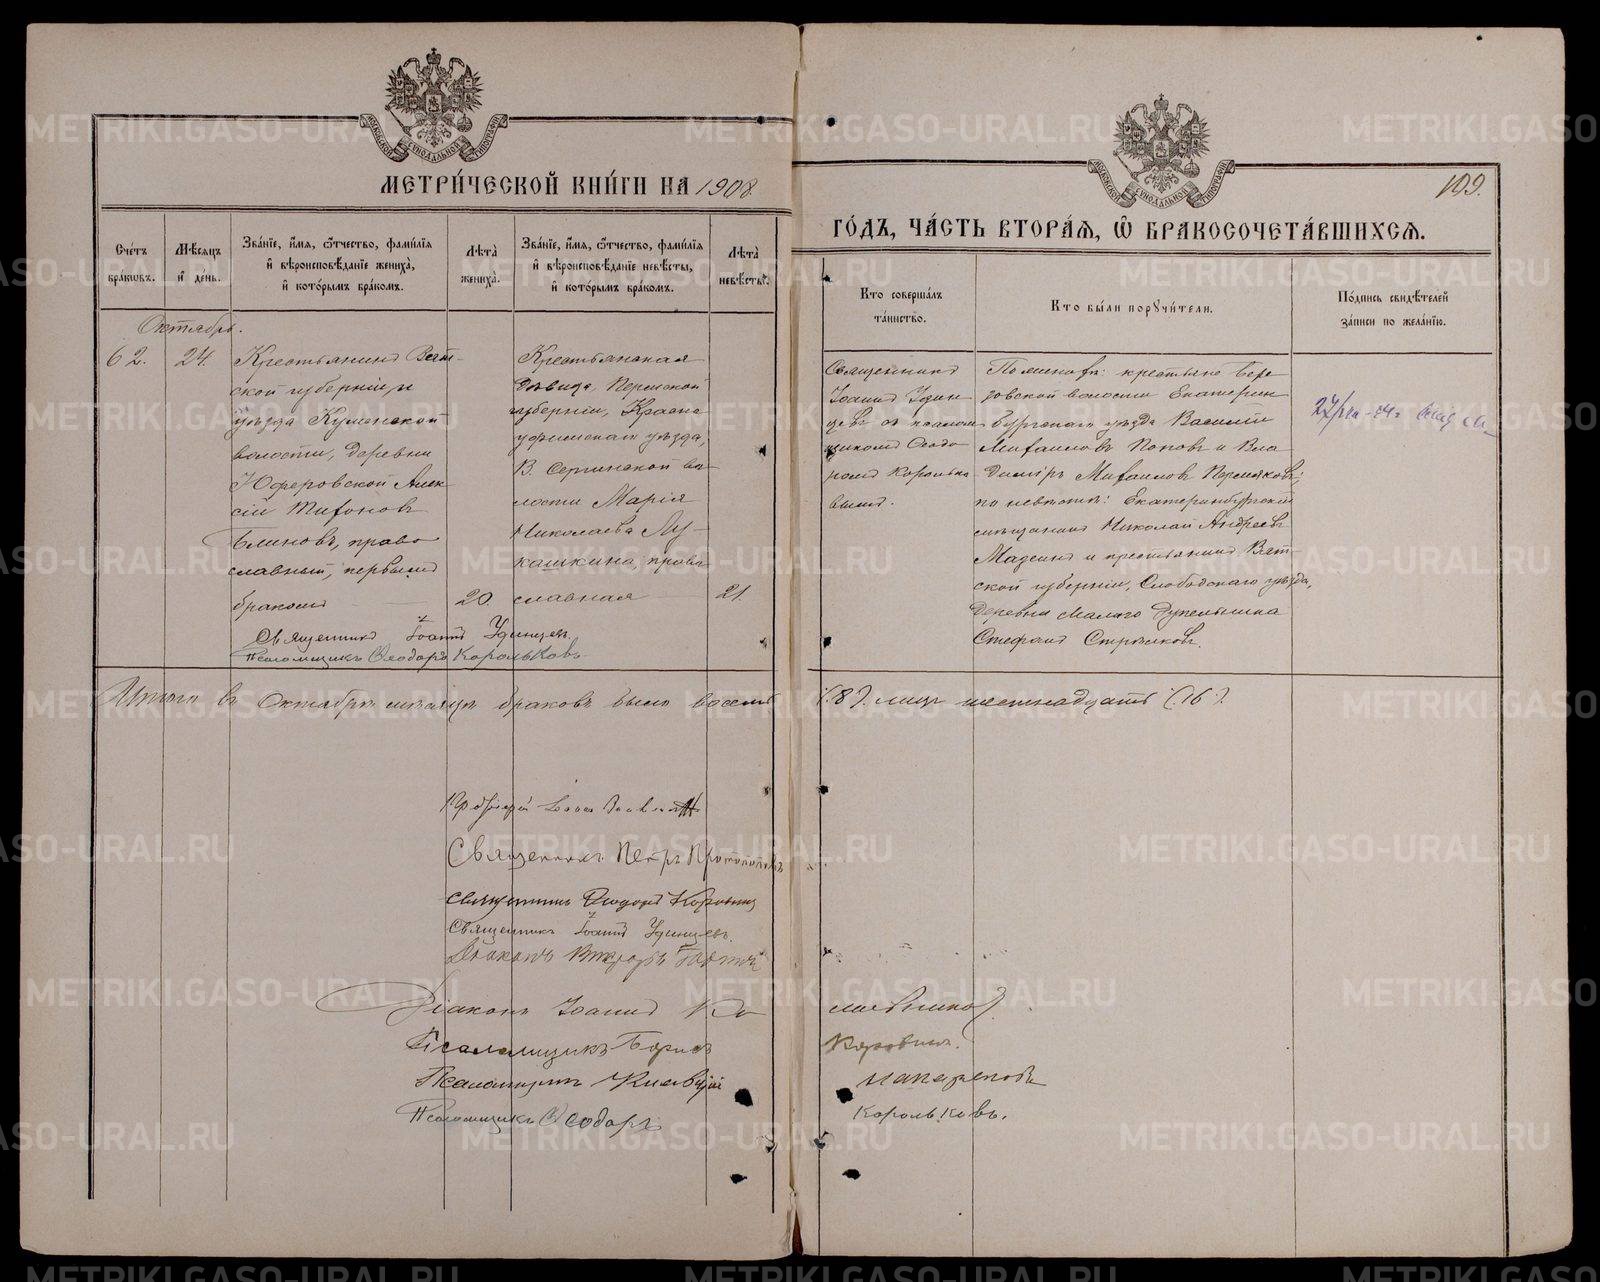 МЕТРИ́ЧЕСКОЙ КНИ́ГИ НА 1908.
ГО́ДЪ, ЧА́СТЬ ВТОРА́Я, Ѡ҆ БРАКОСОЧЕТА́ВШИХСЯ.
109.
МОСКОВСКОЙ СѴНОДАЛЬНОЙ ТИПОГРАФІИ
МОСКОВСКОЙ СѴНОДАЛЬНОЙ ТИПОГРАФІИ
Сче́тъ
бра́кѡвъ.
Мѣ́сяцъ
и҆ де́нь.
Зва́нїе, и҆́мя, ѻ҆́тчество, фами́лїя
и҆ вѣроисповѣ́данїе жениха̀,
и҆ кото́рымъ бра́комъ.
Лѣ́та
жениха̀.
Зва́нїе, и҆́мя, ѻ҆́тчество, фами́лїя
и҆ вѣроисповѣ́данїе невѣ́сты,
и҆ кото́рымъ бра́комъ.
Лѣ́та
невѣ́сты.
Кто̀ соверша́лъ
та́инство.
Кто̀ бы́ли порꙋчи́тели.
По́дпись свидѣ́телей
за́писи по жела́нїю.
Октябрь.
62.
24.
Крестьянинъ Вят-
ской губерніи, и
уѣзда Куменской
волости, деревни
Юферовской Алек
сій Тихоновъ
Блиновъ, право
славный, первымъ
бракомъ
20.
Крестьянская
дѣвица Пермской
губерніи, Красно
уфимскаго уѣзда,
В. Сергинской во
лости Марія
Николаева Лу-
кашкина, право
славная
21.
Священникъ
Іоаннъ Удин
цевъ съ псалом
щикомъ Ѳеодо
ромъ Королько
вымъ.
По женихѣ: крестьяне Бере
зовской волости Екатерин
бургскаго уѣзда Василій
Михаиловъ Поповъ и Вла
диміръ Михаиловъ Пермяковъ;
по невѣстѣ: Екатеринбургскій
мѣщанинъ Николай Андреевъ
и крестьянинъ Вят-
ской губерніи, Слободскаго уѣзда,
деревни Малаго
Стефанъ Стрѣлковъ.
Священникъ Іоаннъ Удинцевъ
Псаломщикъ Ѳеодоръ Корольковъ
Итого въ Октябрѣ мѣсяцѣ браковъ было восемь (8). лицъ шестнадцать (16).
Священникъ Петръ Протопоповъ
Священникъ Ѳеодоръ Коровинъ
Священникъ Іоаннъ Удинцевъ.
Діаконъ
Діаконъ Іоаннъ
Псаломщикъ Борисъ Коровинъ.
Псаломщикъ
Псаломщикъ Ѳеодоръ Корольковъ.
METRIKI.GASO-URAL.RU